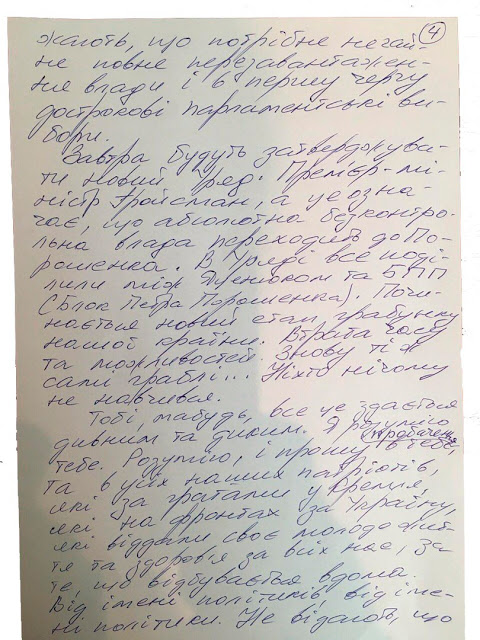 4
жають, що потрібне негай-
не повне перезавантажен-
ня влади і в першу чергу
дострокові парламентські ви-
бори.
Завтра будуть затверджува-
ти новий Уряд. Прем'єр-мі-
ністр Гройсман, а це озна-
чає, що абсолютна безконтро-
льна влада переходить до По-
рошенка. В Уряді все поді-
лили між Яценюком та БПП
(Блок Петра Порошенка). Почи-
нається новий етап грабунку
нашої країни. Втрата часу
та можливостей. Знову ті ж
самі граблі... Ніхто нічому
не навчився.
Тобі, мабудь, все це здається
дивним та диким. Я розумію
тебе. Розумію, і прошу в тебе, пробачення
та в усіх наших патріотів,
які за гратами у Кремля,
які на фронтах за Україну,
які віддали своє молоде жит-
тя та здоров'я за всіх нас, за
те, що відбувається вдома.
Від імені політиків, від іме-
ні політики. Не відають, що